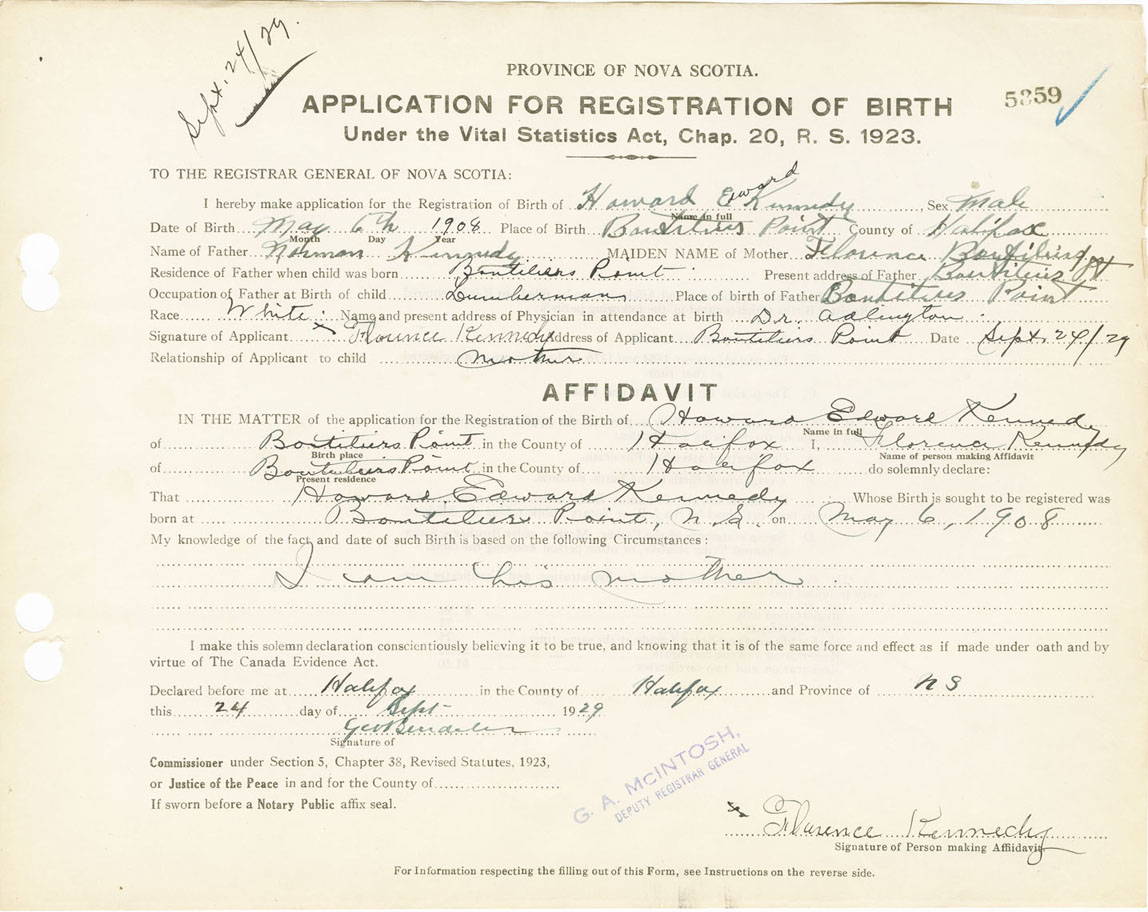 Sept. 24/29.
PROVINCE OF NOVA SCOTIA.
5859
APPLICATION FOR REGISTRATION OF BIRTH
Under the Vital Statistics Act, Chap. 20, R. S. 1923.
TO THE REGISTRAR GENERAL OF NOVA SCOTIA:
I hereby make application for the Registration of Birth of Howard Edward Kennedy, Sex Male
Name in full
Date of Birth May 6th 1908 Place of Birth Boutiliers Point County of Halifax
Month Day Year
Name of Father Norman Kennedy MAIDEN NAME of Mother Florence
Residence of Father when child was born Boutiliers Point Present address of Father Boutiliers Pt
Occupation of Father at Birth of child Lumberman Place of birth of Father Boutiliers Point
Race White Name and present address of Physician in attendance at birth Dr. Adlington
Signature of Applicant x Florence Kennedy Address of Applicant Boutiliers Point Date Sept. 24/29
Relationship of Applicant to child mother
AFFIDAVIT
IN THE MATTER of the application for the Registration of the Birth of Howard Edward Kennedy
Name in full
of Boutiliers Point in the County of Halifax I, Florence Kennedy
Birth place Name of person making Affidavit
of Boutiliers Point in the County of Halifax do solemnly declare:
Present residence
That Howard Edward Kennedy Whose Birth is sought to be registered was
born at Boutiliers Point, N.S. on May 6, 1908
My knowledge of the fact and date of such Birth is based on the following Circumstances:
I am his mother
I make this solemn declaration conscientiously believing it to be true, and knowing that it is of the same force and effect as if made under oath and by
virtue of The Canada Evidence Act.
Declared before me at Halifax in the County of Halifax and Province of NS
this 24 day of Sept 1929
Signature of
Commissioner under Section 5, Chapter 38, Revised Statutes, 1923,
or Justice of the Peace in and for the County of
If sworn before a Notary Public affix seal.
G. A. McINTOSH,
DEPUTY REGISTRAR GENERAL
x Florence Kennedy
Signature of Person making Affidavit
For Information respecting the filling out of this Form, see Instructions on the reverse side.